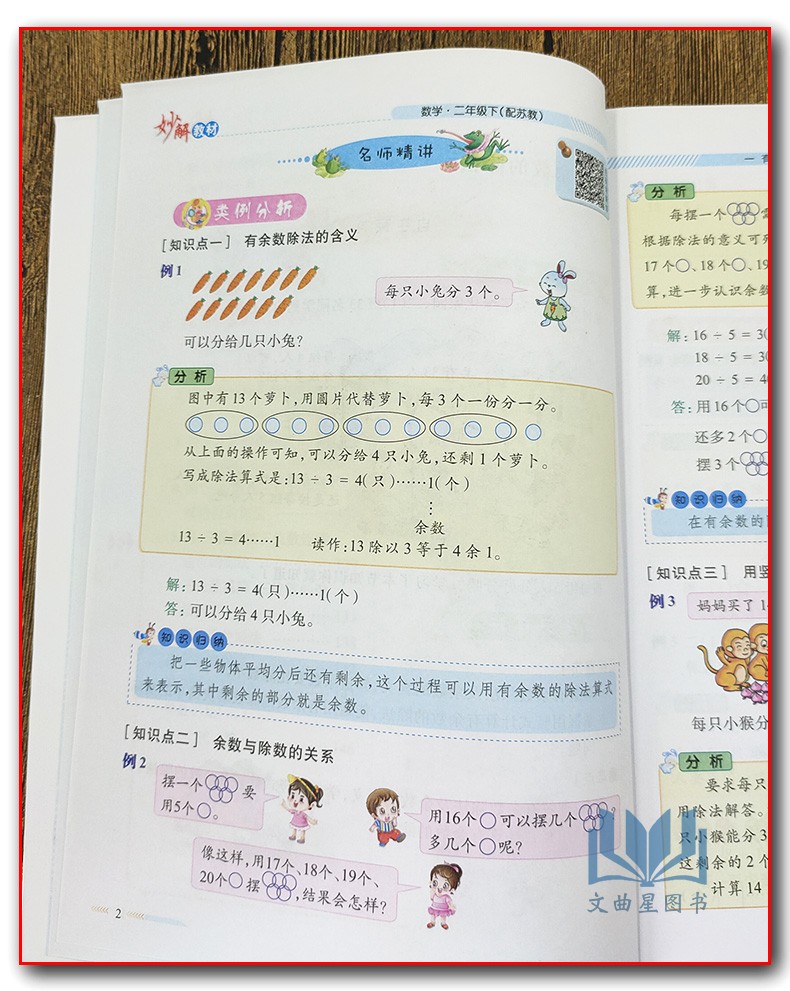 妙解教材
数学·二年级下(配苏教)
名师精讲
类例分析
[知识点一] 有余数除法的含义
例1
每只小兔分3个。
可以分给几只小兔?
分析
图中有13个萝卜,用圆片代替萝卜,每3个一份分一分。
从上面的操作可知,可以分给4只小兔,还剩1个萝卜。
写成除法算式是:13÷3=4(只)……1(个)
⋮
余数
13÷3=4……1 读作:13除以3等于4余1。
解:13÷3=4(只)……1(个)
答:可以分给4只小兔。
知识归纳
把一些物体平均分后还有剩余,这个过程可以用有余数的除法算式
来表示,其中剩余的部分就是余数。
[知识点二] 余数与除数的关系
例2
摆一个 要
用5个○。
用16个○可以摆几个 ?
多几个○呢?
像这样,用17个、18个、19个、
20个○摆 ,结果会怎样?
2
一
分析
每摆一个
根据除法的意义可列
17个○、18个○、19
算,进一步认识余数
解:16÷5=3(
18÷5=3(
20÷5=4(
答:用16个○可
还多2个○
摆3个
知识归纳
在有余数的
[知识点三] 用竖
例3
妈妈买了1
每只小猴分
分析
要求每只
用除法解答。
只小猴能分3
这剩余的2个
计算14
文曲星图书